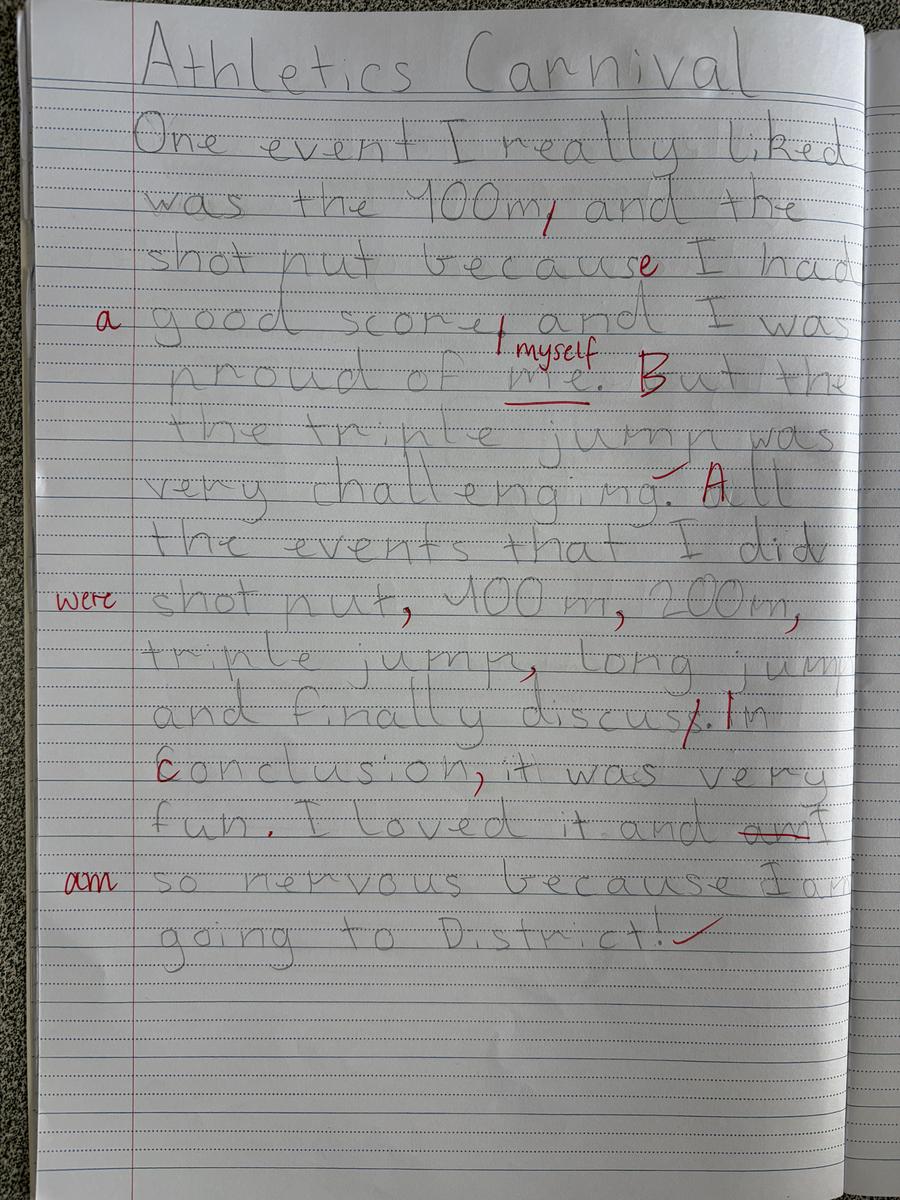 Athletics Carnival
One event I really liked
was the 100m, and the
shot put because I had
a good score, and I was
myself
proud of me. But the
the triple jump was
very challenging. All
the events that I did
were shot put, 100m, 200m,
triple jump, long jump
and finally discuss. In
Conclusion, it was very
fun. I loved it and am I
am so nervous because I am
going to District!